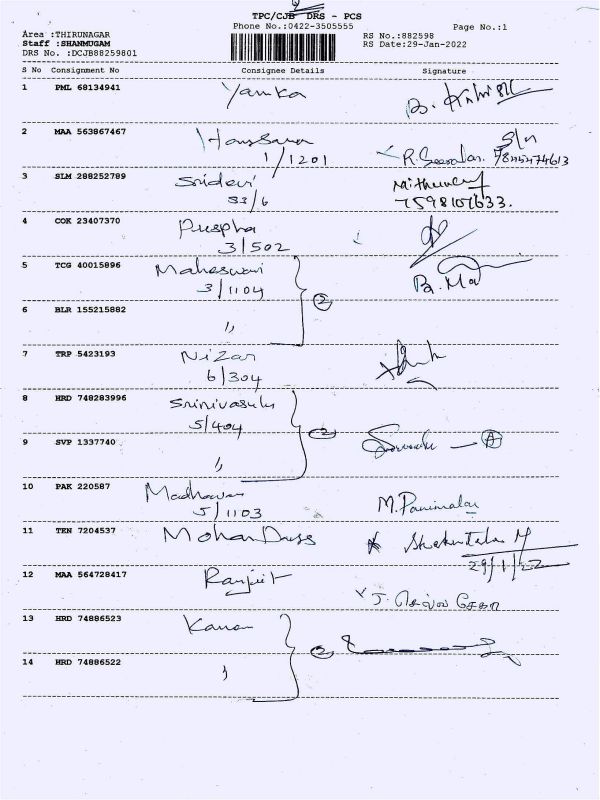 TPC/CJB DRS - PCS
Phone No.:0422-3505555
Page No.:1
Area :THIRUNAGAR
Staff :SHANMUGAM
DRS No. :DCJB88259801
RS No.:882598
RS Date:29-Jan-2022
S No Consignment No Consignee Details Signature
1 PML 68134941
2 MAA 563867467
1/1201
3 SLM 288252789 Sridevi
S3/6
4 COK 23407370 Puspha
3/502
5 TCG 40015896 Maheswari
3/1104
2
6 BLR 155215882 "
7 TRP 5423193 Nizar
6/304
8 HRD 748283996 Srinivasulu
5/404
2
9 SVP 1337740 "
A
10 PAK 220587 Madhavan M.Panimalar
5/1103
11 TEN 7204537 Mohan Dass
29/1/22
12 MAA 564728417 Ranjit
13 HRD 74886523
2
14 HRD 74886522